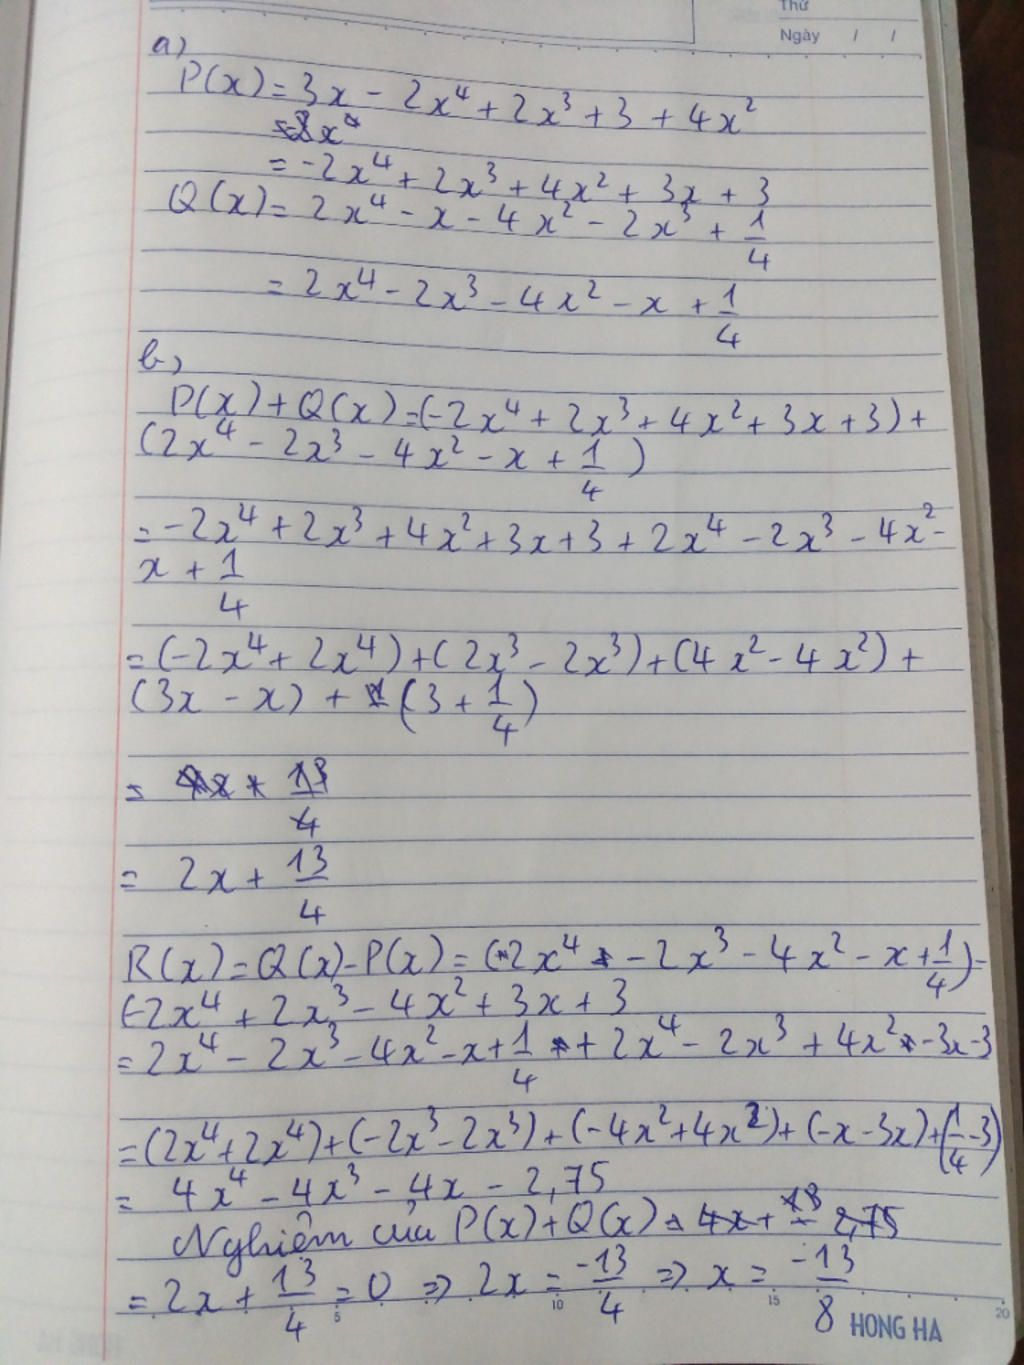 Thứ
Ngày / /
a)
P(x) = 3x - 2x⁴ + 2x³ + 3 + 4x²
= -2x⁴ + 2x³ + 4x² + 3x + 3
Q(x) = 2x⁴ - x - 4x² - 2x³ + 1/4
= 2x⁴ - 2x³ - 4x² - x + 1/4
b)
P(x) + Q(x) = (-2x⁴ + 2x³ + 4x² + 3x + 3) +
(2x⁴ - 2x³ - 4x² - x + 1/4)
= -2x⁴ + 2x³ + 4x² + 3x + 3 + 2x⁴ - 2x³ - 4x² -
x + 1/4
= (-2x⁴ + 2x⁴) + (2x³ - 2x³) + (4x² - 4x²) +
(3x - x) + (3 + 1/4)
= 13/4
= 2x + 13/4
R(x) = Q(x) - P(x) = (2x⁴ - 2x³ - 4x² - x + 1/4) -
(-2x⁴ + 2x³ - 4x² + 3x + 3
= 2x⁴ - 2x³ - 4x² - x + 1/4 + 2x⁴ - 2x³ + 4x² - 3x - 3
= (2x⁴ + 2x⁴) + (-2x³ - 2x³) + (-4x² + 4x²) + (-x - 3x) + (1/4 - 3)
= 4x⁴ - 4x³ - 4x - 2,75
Nghiệm của P(x) + Q(x) = 4x + 13 2,75
= 2x + 13/4 = 0 ⇒ 2x = -13/4 ⇒ x = -13/8
5 10 15 20
HONG HA